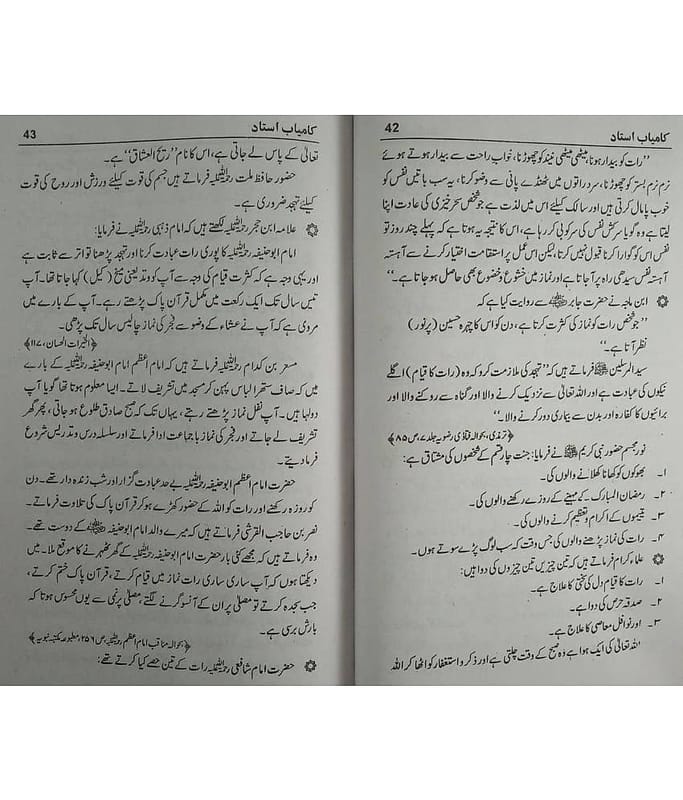 42 کامیاب استاد
’’رات کو بیدار ہونا، میٹھی میٹھی نیند کو چھوڑنا، خوابِ راحت سے بیدار ہوتے ہوئے
نرم نرم بستر کو چھوڑنا، سرد راتوں میں ٹھنڈے پانی سے وضو کرنا، یہ سب باتیں نفس کو
خوب پامال کرتی ہیں اور سالک کیلئے اس میں لذت ہے جو شخص سحر خیزی کی عادت اپنا
لیتا ہے وہ گویا سرکش نفس کی سرکوبی کر رہا ہے، اس کا نتیجہ یہ ہوتا ہے کہ پہلے چند روز تو
نفس اس کو گوارا کرنا قبول نہیں کرتا، لیکن اس عمل پر استقامت اختیار کرنے سے آہستہ
آہستہ نفس سیدھی راہ پر آ جاتا ہے اور نماز میں خشوع و خضوع بھی حاصل ہو جاتا ہے۔‘‘
ابن ماجہ نے حضرت جابر ؓ سے روایت کیا ہے کہ
’’جو شخص رات کو نماز کی کثرت کرتا ہے، دن کو اس کا چہرہ حسین (پرنور)
نظر آتا ہے۔‘‘
سید المرسلین ﷺ فرماتے ہیں کہ ’’تہجد کی ملازمت کرو کہ وہ (رات کا قیام) اگلے
نیکوں کی عبادت ہے اور اللہ تعالیٰ سے نزدیک کرنے والا اور گناہ سے روکنے والا اور
برائیوں کا کفارہ اور بدن سے بیماری دور کرنے والا۔‘‘
﴿ترمذی، بحوالہ فتاویٰ رضویہ جلد ۷، ص ۸۵﴾
نور مجسم حضور نبی کریم ﷺ نے فرمایا: جنت چار قسم کے شخصوں کی مشتاق ہے:
۱۔ بھوکوں کو کھانا کھلانے والوں کی۔
۲۔ رمضان المبارک کے مہینے کے روزے رکھنے والوں کی۔
۳۔ یتیموں کے اکرام و تعظیم کرنے والوں کی۔
۴۔ رات کی نماز پڑھنے والوں کی جس وقت کہ سب لوگ پڑے سوتے ہوں۔
علماء کرام فرماتے ہیں کہ تین چیزیں تین چیزوں کی دوا ہیں:
۱۔ رات کا قیام دل کی سختی کا علاج ہے۔
۲۔ صدقہ حرص کی دوا ہے۔
۳۔ اور نوافل معاصی کا علاج ہے۔
اللہ تعالیٰ کی ایک ہوا ہے وہ صبح کے وقت چلتی ہے اور ذکر و استغفار کو اٹھا کر اللہ
43 کامیاب استاد
تعالیٰ کے پاس لے جاتی ہے، اس کا نام ’’ریح العشاق‘‘ ہے۔
حضور حافظ ملت رحمۃ اللہ علیہ فرماتے ہیں جسم کی قوت کیلئے ورزش اور روح کی قوت
کیلئے تہجد ضروری ہے۔
علامہ ابن حجر رحمۃ اللہ علیہ لکھتے ہیں کہ امام ذہبی رحمۃ اللہ علیہ نے فرمایا:
امام ابو حنیفہ رحمۃ اللہ علیہ کا پوری رات عبادت کرنا اور تہجد پڑھنا تواتر سے ثابت ہے
اور یہی وجہ ہے کہ کثرت قیام کی وجہ سے آپ کو وتد یعنی میخ (کیل) کہا جاتا تھا۔ آپ
تیس سال تک ایک رکعت میں مکمل قرآن پاک پڑھتے رہے۔ آپ کے بارے میں
مروی ہے کہ آپ نے عشاء کے وضو سے فجر کی نماز چالیس سال تک پڑھی۔
﴿الخیرات الحسان، ۱۱۷﴾
مسعر بن کدام رحمۃ اللہ علیہ فرماتے ہیں کہ امام اعظم ابو حنیفہ رحمۃ اللہ علیہ کے بارے
میں کہ صاف ستھرا لباس پہن کر مسجد میں تشریف لاتے۔ ایسا معلوم ہوتا گویا آپ
دولہا ہیں۔ آپ نفل نماز پڑھتے رہتے، یہاں تک کہ صبح صادق طلوع ہو جاتی، پھر گھر
تشریف لے جاتے اور فجر کی نماز با جماعت ادا فرماتے اور سلسلہ درس و تدریس شروع
فرما دیتے۔
حضرت امام اعظم ابو حنیفہ رحمۃ اللہ علیہ بے حد عبادت گزار اور شب زندہ دار تھے۔ دن
کو روزہ رکھتے اور رات کو اللہ کے حضور کھڑے ہو کر قرآن پاک کی تلاوت فرماتے۔
نصر بن حاجب القرشی فرماتے ہیں کہ میرے والد امام ابو حنیفہ ؓ کے دوست تھے۔
وہ فرماتے ہیں کہ مجھے کئی بار حضرت امام ابو حنیفہ رحمۃ اللہ علیہ کے گھر ٹھہرنے کا موقع ملا۔ میں
دیکھتا ہوں کہ آپ ساری ساری رات نماز میں قیام کرتے، قرآن پاک ختم کرتے،
جب سجدہ کرتے تو مصلیٰ پر ان کے آنسو گرنے لگتے، مصلیٰ پر نمی سے یوں محسوس ہوتا کہ
بارش برسی ہے۔
﴿بحوالہ مناقب امام اعظم رحمۃ اللہ علیہ، ص ۲۵۶، مطبوعہ مکتبہ نبویہ﴾
حضرت امام شافعی رحمۃ اللہ علیہ رات کے تین حصے کیا کرتے تھے: